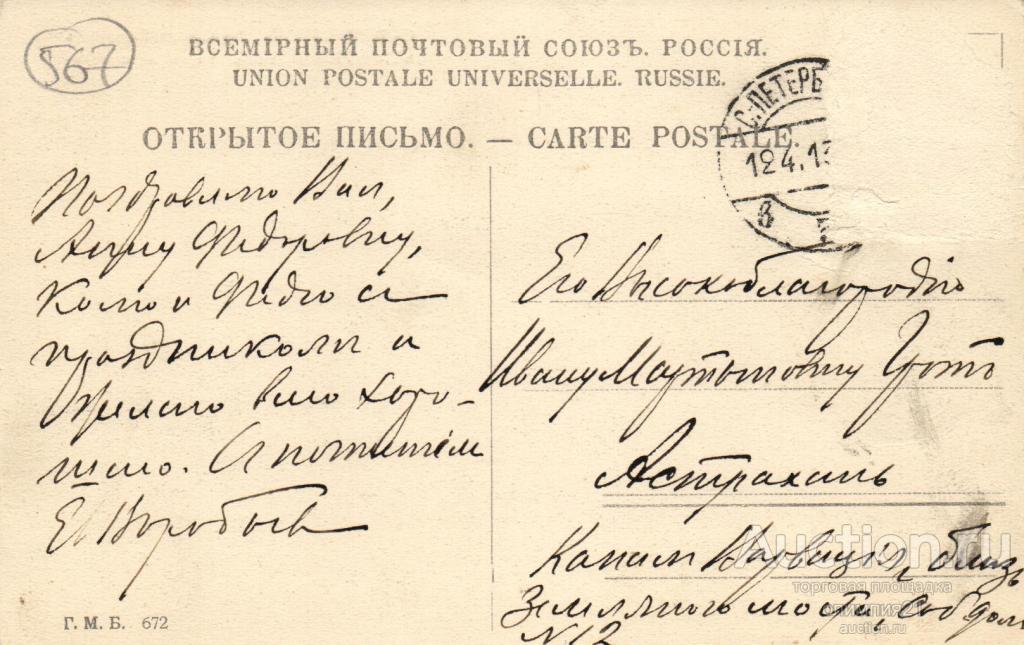 567
ВСЕМІРНЫЙ ПОЧТОВЫЙ СОЮЗЪ. РОССІЯ.
UNION POSTALE UNIVERSELLE. RUSSIE.
ОТКРЫТОЕ ПИСЬМО. — CARTE POSTALE.
С-ПЕТЕРБ
12 4.13
Поздравляю Вас,
Анну Федоровну,
Колю и Федю с
праздником и
желаю всего хоро-
шаго. С почтеніем
Е Воробьев
Его Высокоблагородію
Ивану Мартыновичу
Астрахань
Канава близь
Земляного моста, соб дом
N 12
Г. М. Б. 672
Auction.ru
торговая площадка
олимпия21
auction.ru